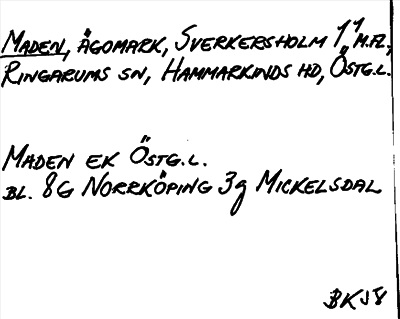 MADEN, ÄGOMARK, SVERKERSHOLM 1¹ M.FL,
RINGARUMS SN, HAMMARKINDS HD, ÖSTG.L.
MADEN EK ÖSTG.L.
BL. 8G NORRKÖPING 3g MICKELSDAL